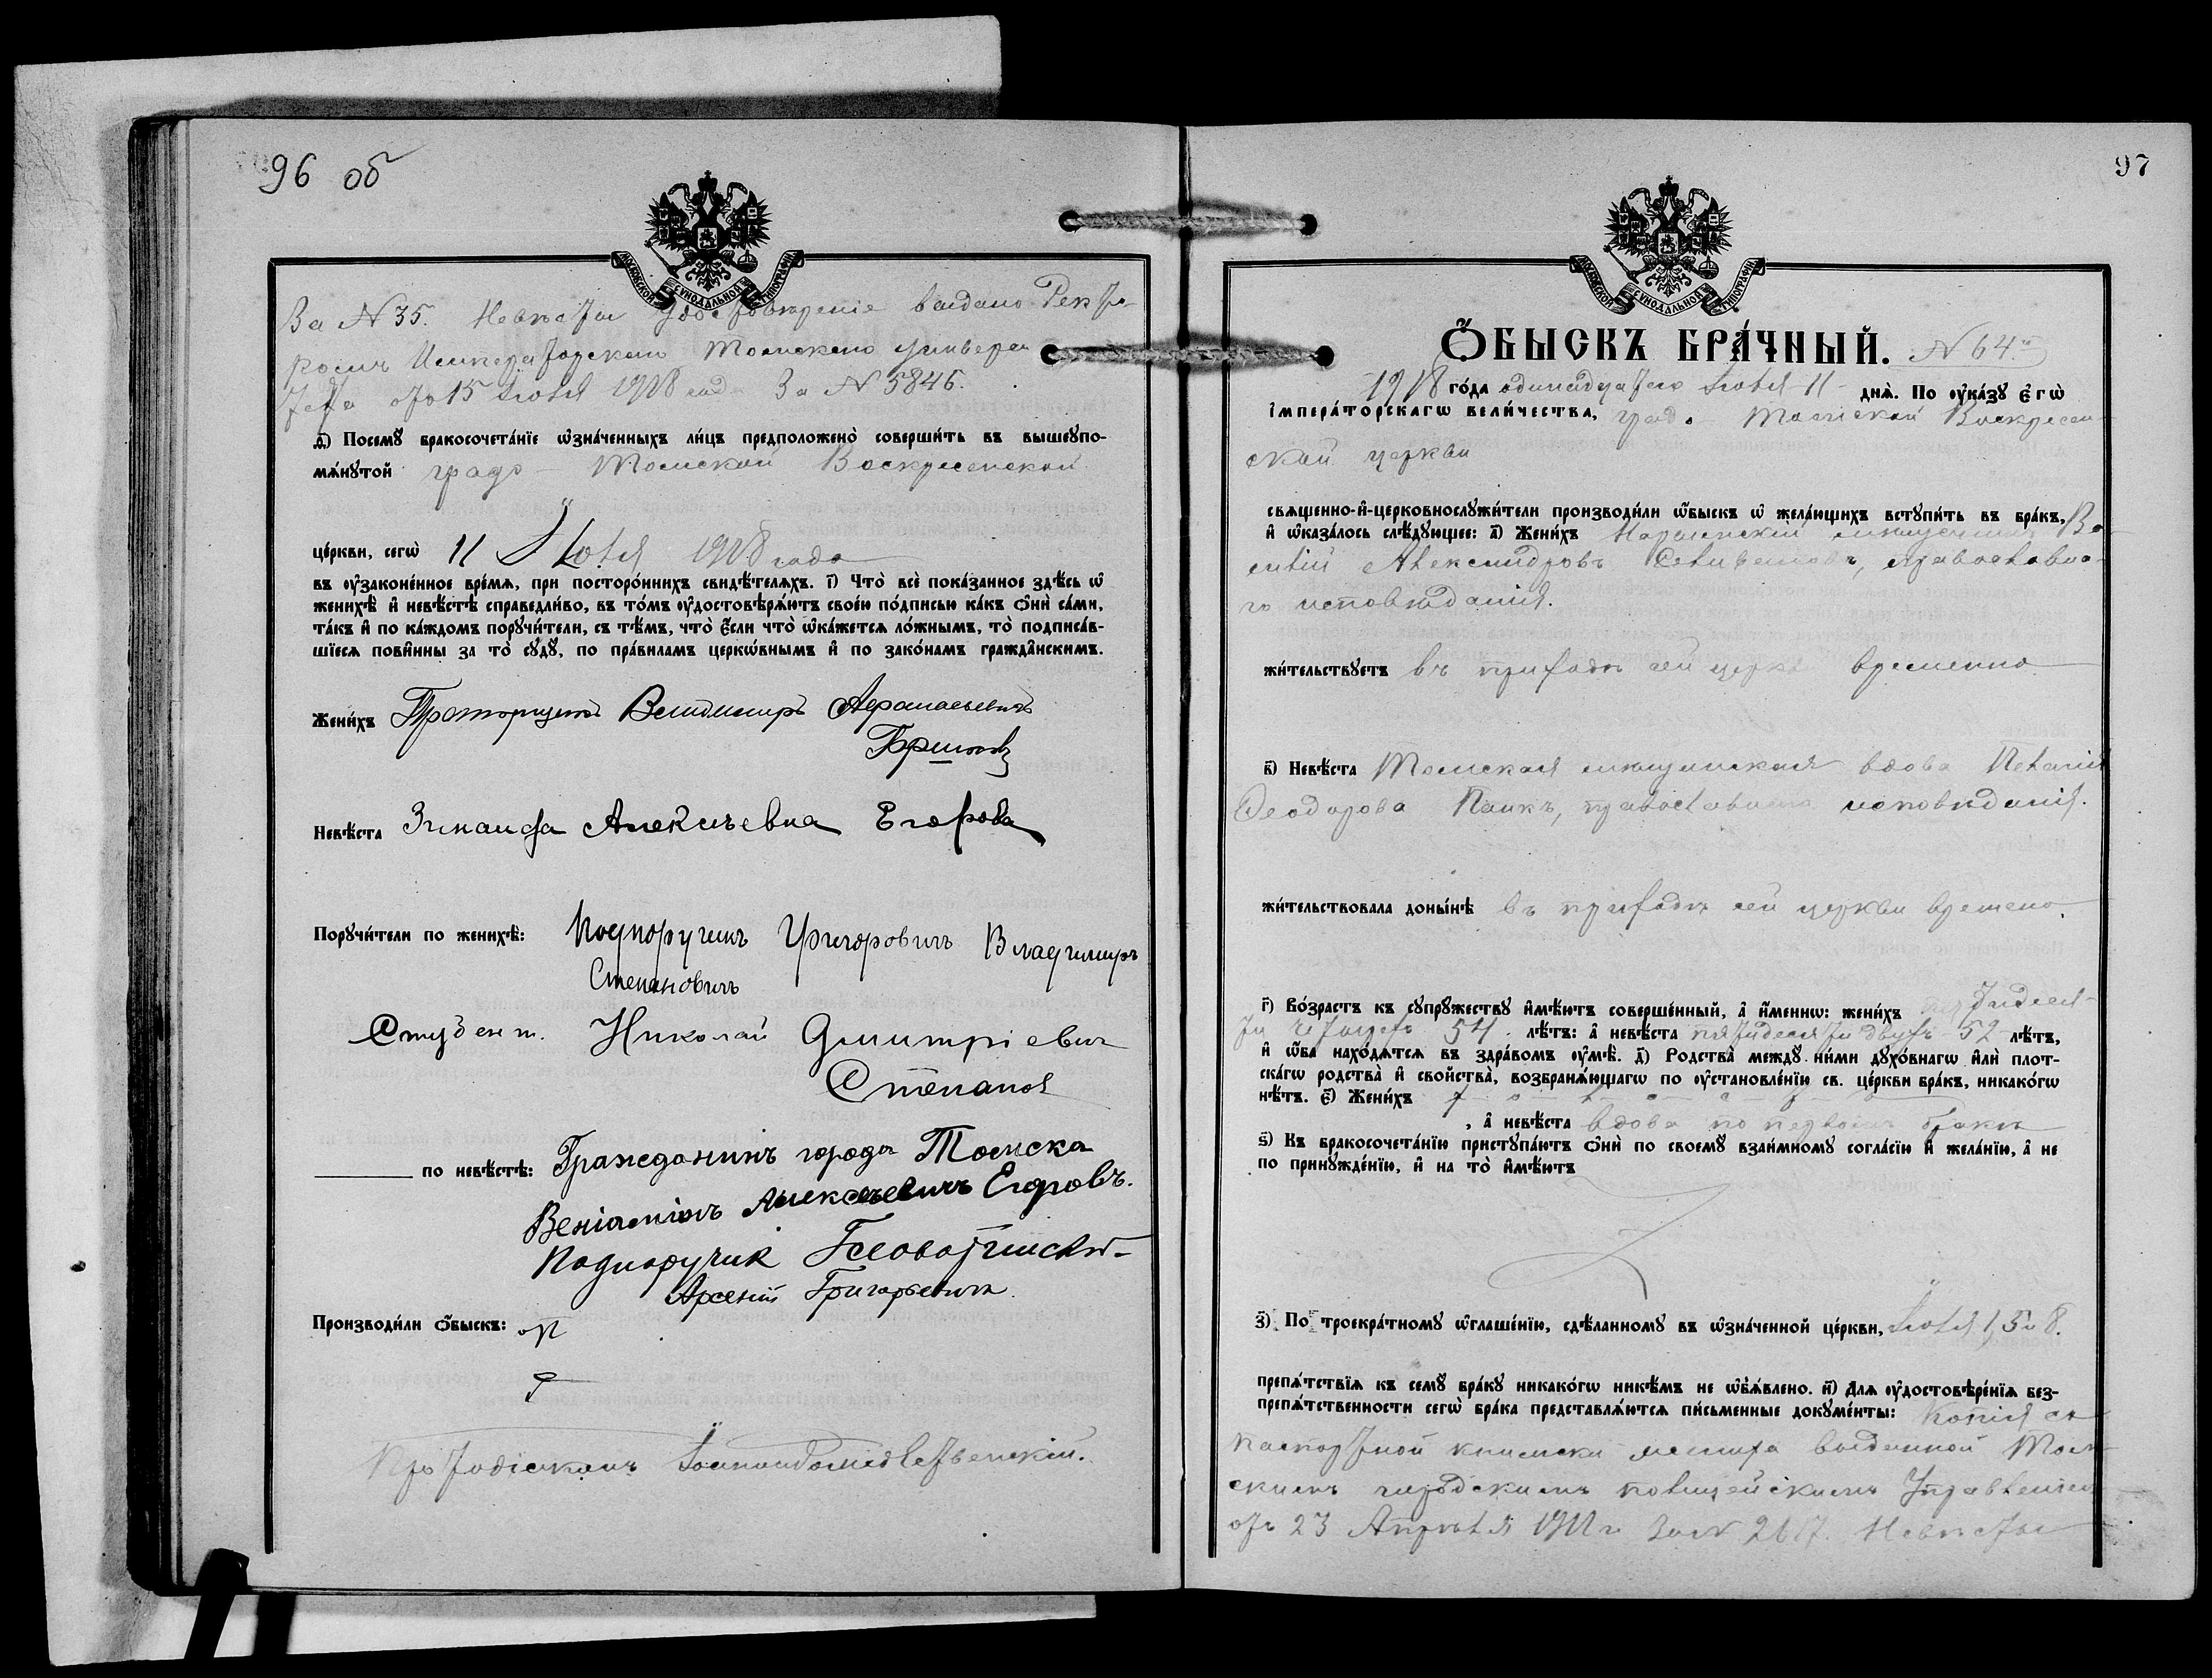 96 об
МОСКОВСКОЙ СѴНОДАЛЬНОЙ ТИПОГРАФІИ
За № 35. Невѣсты Удостовѣреніе выдано Ректо-
ромъ Императорскаго Томскаго Универси
тета отъ 15 Іюля 1918 года За № 5846.
д҃) Посемꙋ бракосочета́нїе ѡ҆зна́ченныхъ ли́цъ предположено̀ соверши́ть въ вышеꙋпо-
мѧ́нꙋтой градо- Томской Воскресенской
це́ркви, сегѡ̀ 11 Іюля 1918 года
въ ᲂу҆законе́нное вре́мѧ, при посторо́ннихъ свидѣ́телѧхъ. і҃) Что̀ всѐ пока́занное здѣ́сь ѡ҆
женихѣ̀ и҆ невѣ́стѣ справедли́во, въ то́мъ ᲂу҆достовѣрѧ́ютъ свое́ю по́дписью ка́къ ѻ҆нѝ са́ми,
та́къ и҆ по ка́ждомъ порꙋчи́тели, съ тѣ́мъ, что̀ є҆́сли что̀ ѡ҆ка́жетсѧ ло́жнымъ, то̀ подписа́в-
шїесѧ пови́нны за то̀ сꙋдꙋ̀, по пра́виламъ церко́внымъ и҆ по зако́намъ гражда́нскимъ.
Жени́хъ Прапорщикъ Владимиръ Афанасьевичъ
Невѣ́ста Зинаида Алексѣевна Егорова
Порꙋчи́тели по женихѣ̀: Подпоручикъ Григоровичъ Владимиръ
Степановичъ
Студент. Николай Дмитріевич
Степанов
по невѣ́стѣ: Гражданинъ города Томска
Веніаминъ Алексѣевичъ Егоровъ.
Подпоручик
Арсеній Григорьевичъ.
Производи́ли ѻ҆́быскъ:
Протодіаконъ
97
МОСКОВСКОЙ СѴНОДАЛЬНОЙ ТИПОГРАФІИ
Ѻ҆́БЫСКЪ БРА́ЧНЫЙ. № 64й
1918 го́да одинадцатаго Іюля 11 днѧ̀. По ᲂу҆ка́зꙋ Є҆гѡ̀
І҆мпера́торскагѡ вели́чества, градо Томской Воскресен-
ской церкви
свѧще́нно-и҆-церковнослꙋжи́тели производи́ли ѻ҆́быскъ ѡ҆ жела́ющихъ встꙋпи́ть въ бра́къ,
и҆ ѡ҆каза́лось слѣ́дꙋющее: а҃) Жени́хъ Нарымскій мѣщанинъ
Александровъ Селивановъ, православна-
го исповѣданія.
жи́тельствꙋетъ въ приходѣ сей церкв временно
в҃) Невѣ́ста Томская мѣщанская вдова Пелагія
Ѳеодорова православнаго исповѣданія.
жи́тельствовала донынѣ̀ въ приходѣ сей церкви времено.
г҃) Во́зрастъ къ сꙋпрꙋ́жествꙋ и҆мѣ́ютъ соверше́нный, а҆ и҆́менно: жени́хъ пятидеся-
ти четырехъ 54. лѣ́тъ: а҆ невѣ́ста пятидесяти двухъ 52 лѣ́тъ,
и҆ ѻ҆́ба нахо́дѧтсѧ въ здра́вомъ ᲂу҆мѣ̀. д҃) Родства̀ междꙋ̀ ни́ми дꙋхо́внагѡ и҆лѝ плот-
ска́гѡ родства̀ и҆ свойства̀, возбранѧ́ющагѡ по ᲂу҆становле́нїю св. це́ркви бра́къ, никако́гѡ
нѣ́тъ. є҃) Жени́хъ холостъ
, а҆ невѣ́ста вдова по первомъ бракѣ
ѕ҃) Къ бракосочета́нїю пристꙋпа́ютъ ѻ҆нѝ по своемꙋ̀ взаи́мномꙋ согла́сїю и҆ жела́нїю, а҆ не
по принꙋжде́нїю, и҆ на то̀ и҆мѣ́ютъ
з҃) По троекра́тномꙋ ѡ҆глаше́нїю, сдѣ́ланномꙋ въ ѡ҆зна́ченной це́ркви, Іюля 1, 5 и 8.
препѧ́тствїѧ къ семꙋ̀ бра́кꙋ никако́гѡ никѣ́мъ не ѡ҆б̾ѧ́влено. и҃) Для ᲂу҆достовѣре́нїѧ без-
препѧ́тственности сегѡ̀ бра́ка представлѧ́ютсѧ пи́сьменные докꙋме́нты: Копія съ
паспортной книжки жениха выданной Том-
скимъ городскимъ полицейскимъ Управленіем
отъ 23 Апрѣля За № 2617. Невѣсты